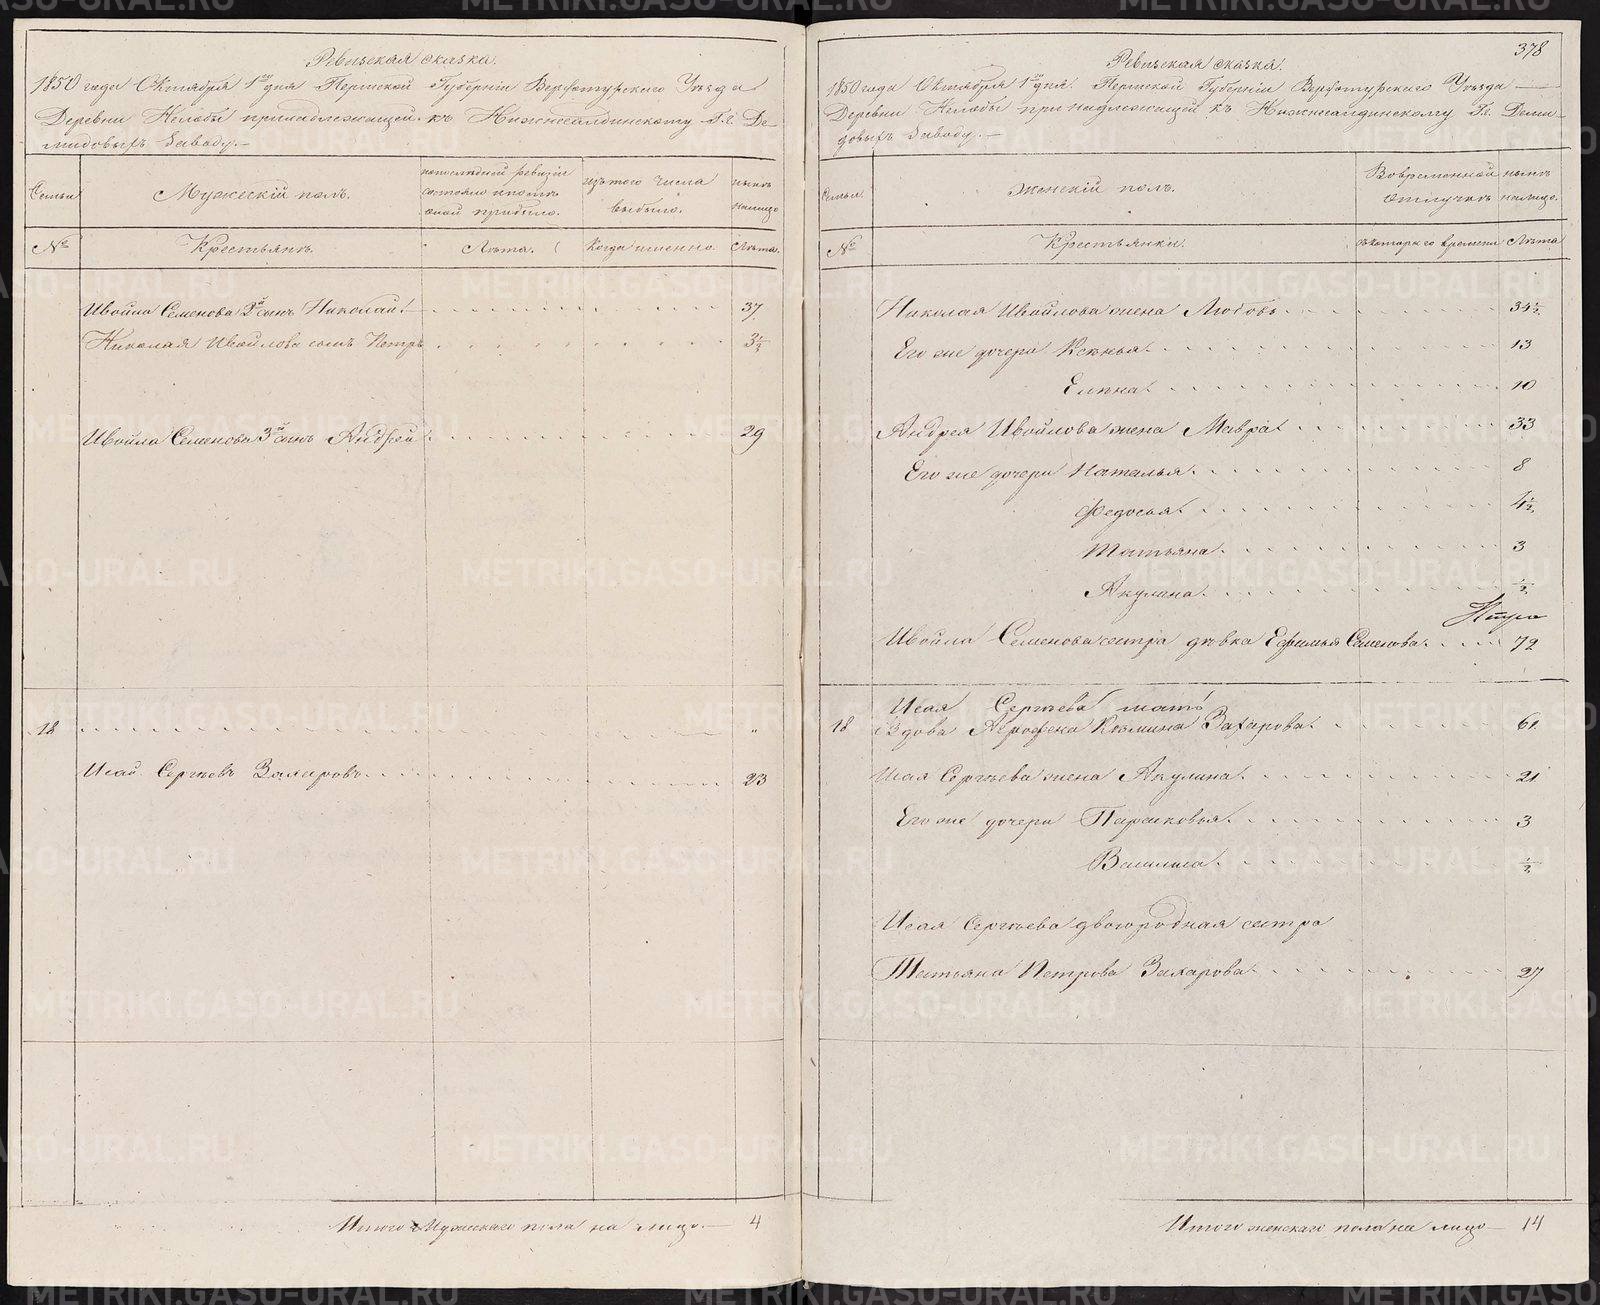 Ревизская сказка.
1850 года Октября 1го дня Пермской Губернiи Верхотурскаго Уѣзда
Деревни Нелобы принадлежащей къ Нижнесалдинскому Г.г. Де-
мидовыхъ Заводу.
Семьи
Мужескiй полъ.
по последней ревизiи состояло и после оной прибыло.
изъ того числа выбыло.
нынѣ налицо
№
Крестьянъ.
Лѣта.
Когда именно
Лѣта.
Ивойла Семенова 2й сынъ Николай 37
Николая Ивойлова сынъ Петръ 3 1/2
Ивойла Семенова 3й сынъ Андрей 29
18 "
Исай Сергѣевъ Захаровъ 23
Итого Мужескаго пола на лицо — 4
378
Ревизская сказка.
1850 года Октября 1го дня. Пермской Губернiи Верхотурскаго Уѣзда
Деревни Нелобы принадлежащей къ Нижнесалдинскому Г.г. Деми-
довыхъ Заводу.
Семьи.
Женскiй полъ.
Во временной отлучкѣ
нынѣ налицо.
№
Крестьянки.
съ котораго времени
Лѣта
Николая Ивойлова жена Любовь 34 1/2
Его же дочери Ксенья 13
Елена 10
Андрея Ивойлова жена Мавра 33
Его же дочери Наталья 8
Федосья 4 1/2
Татьяна 3
Акулина 1/2
Ивойла Семенова сестра дѣвка Ефимья Семенова 72
Исая Сергѣева мать
18 Вдова Агрофена Козмина Захарова 61
Исая Сергѣева жена Акулина 21
Его же дочери Парасковья 3
Василиса 1/2
Исая Сергѣева двоюродная сестра
Татьяна Петрова Захарова 27
Итого женскаго пола на лицо — 14
METRIKI.GASO-URAL.RU